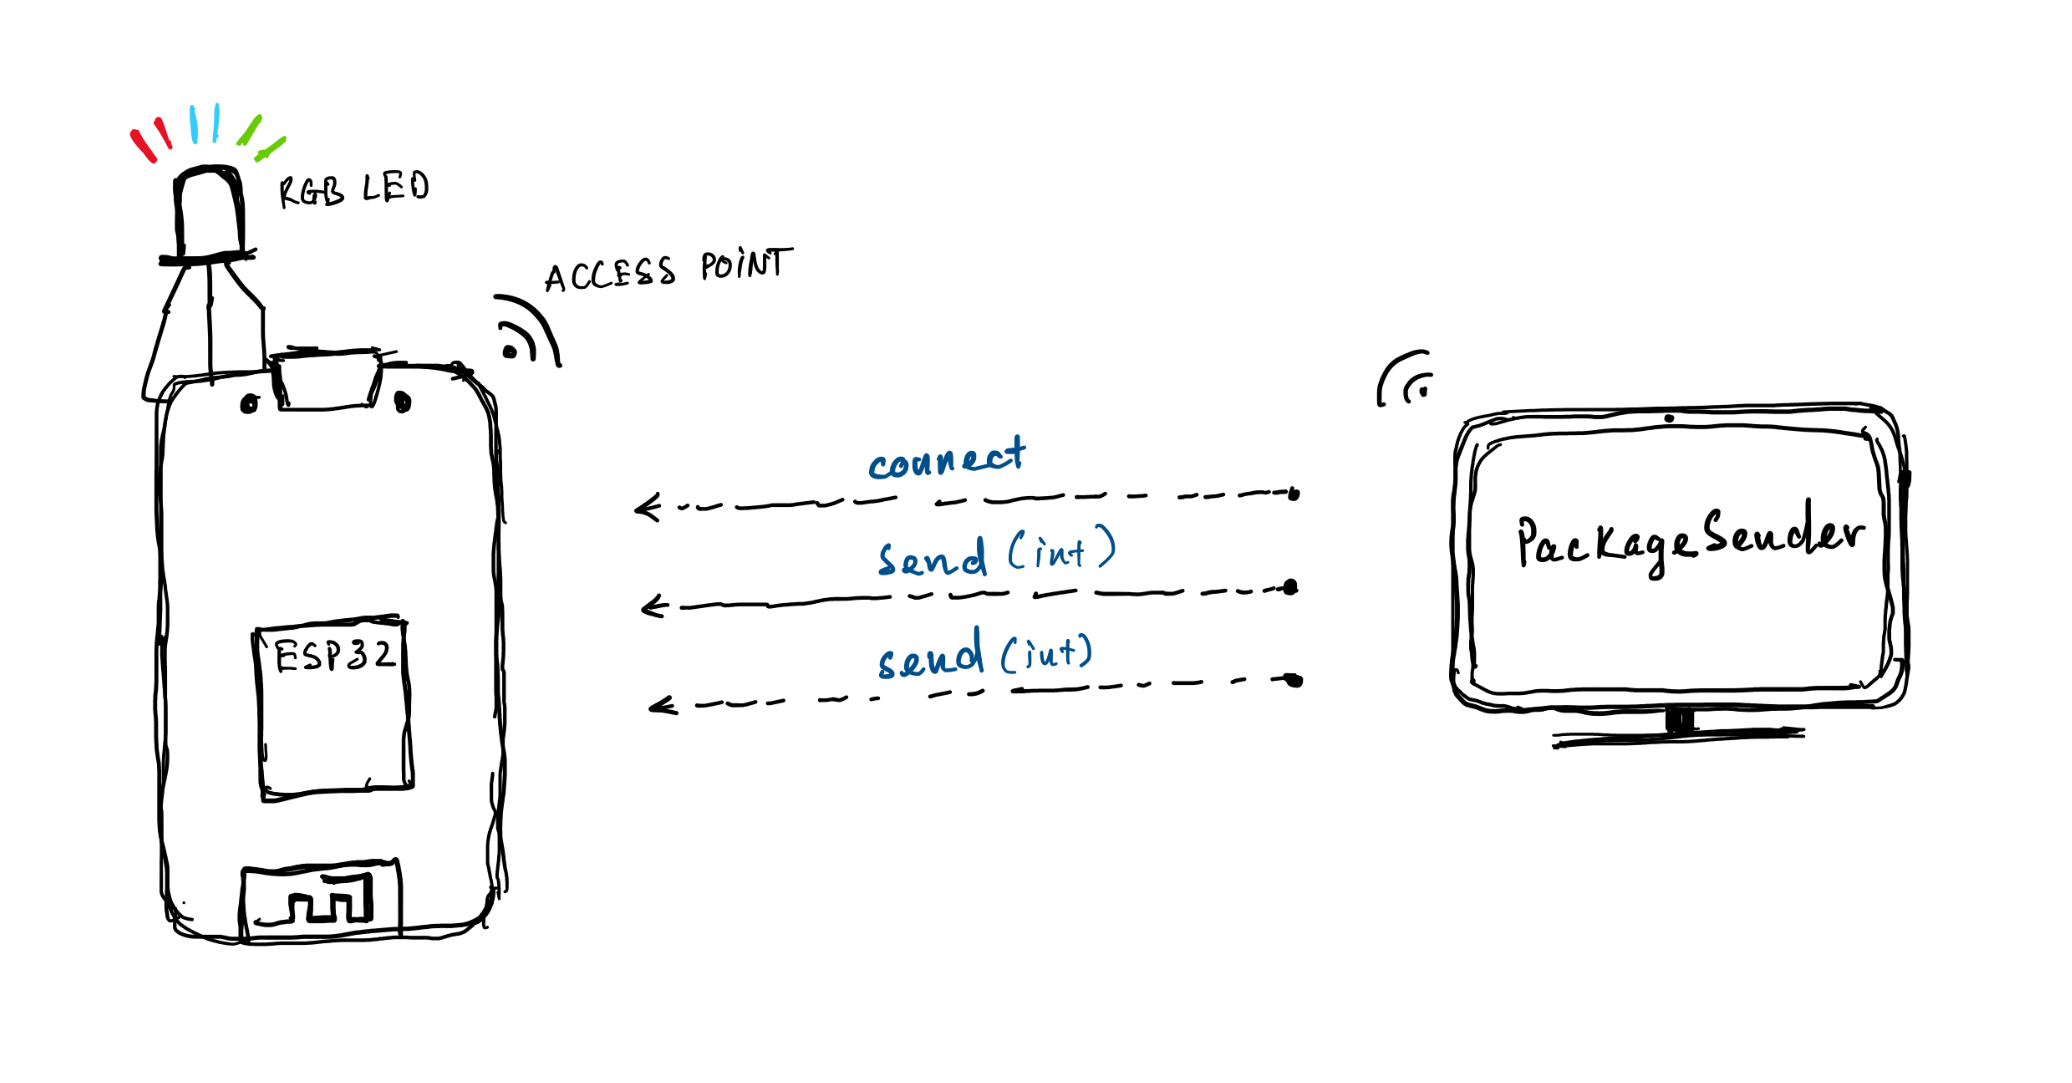 RGB LED
ACCESS POINT
connect
send (int)
send (int)
PackageSender
ESP32